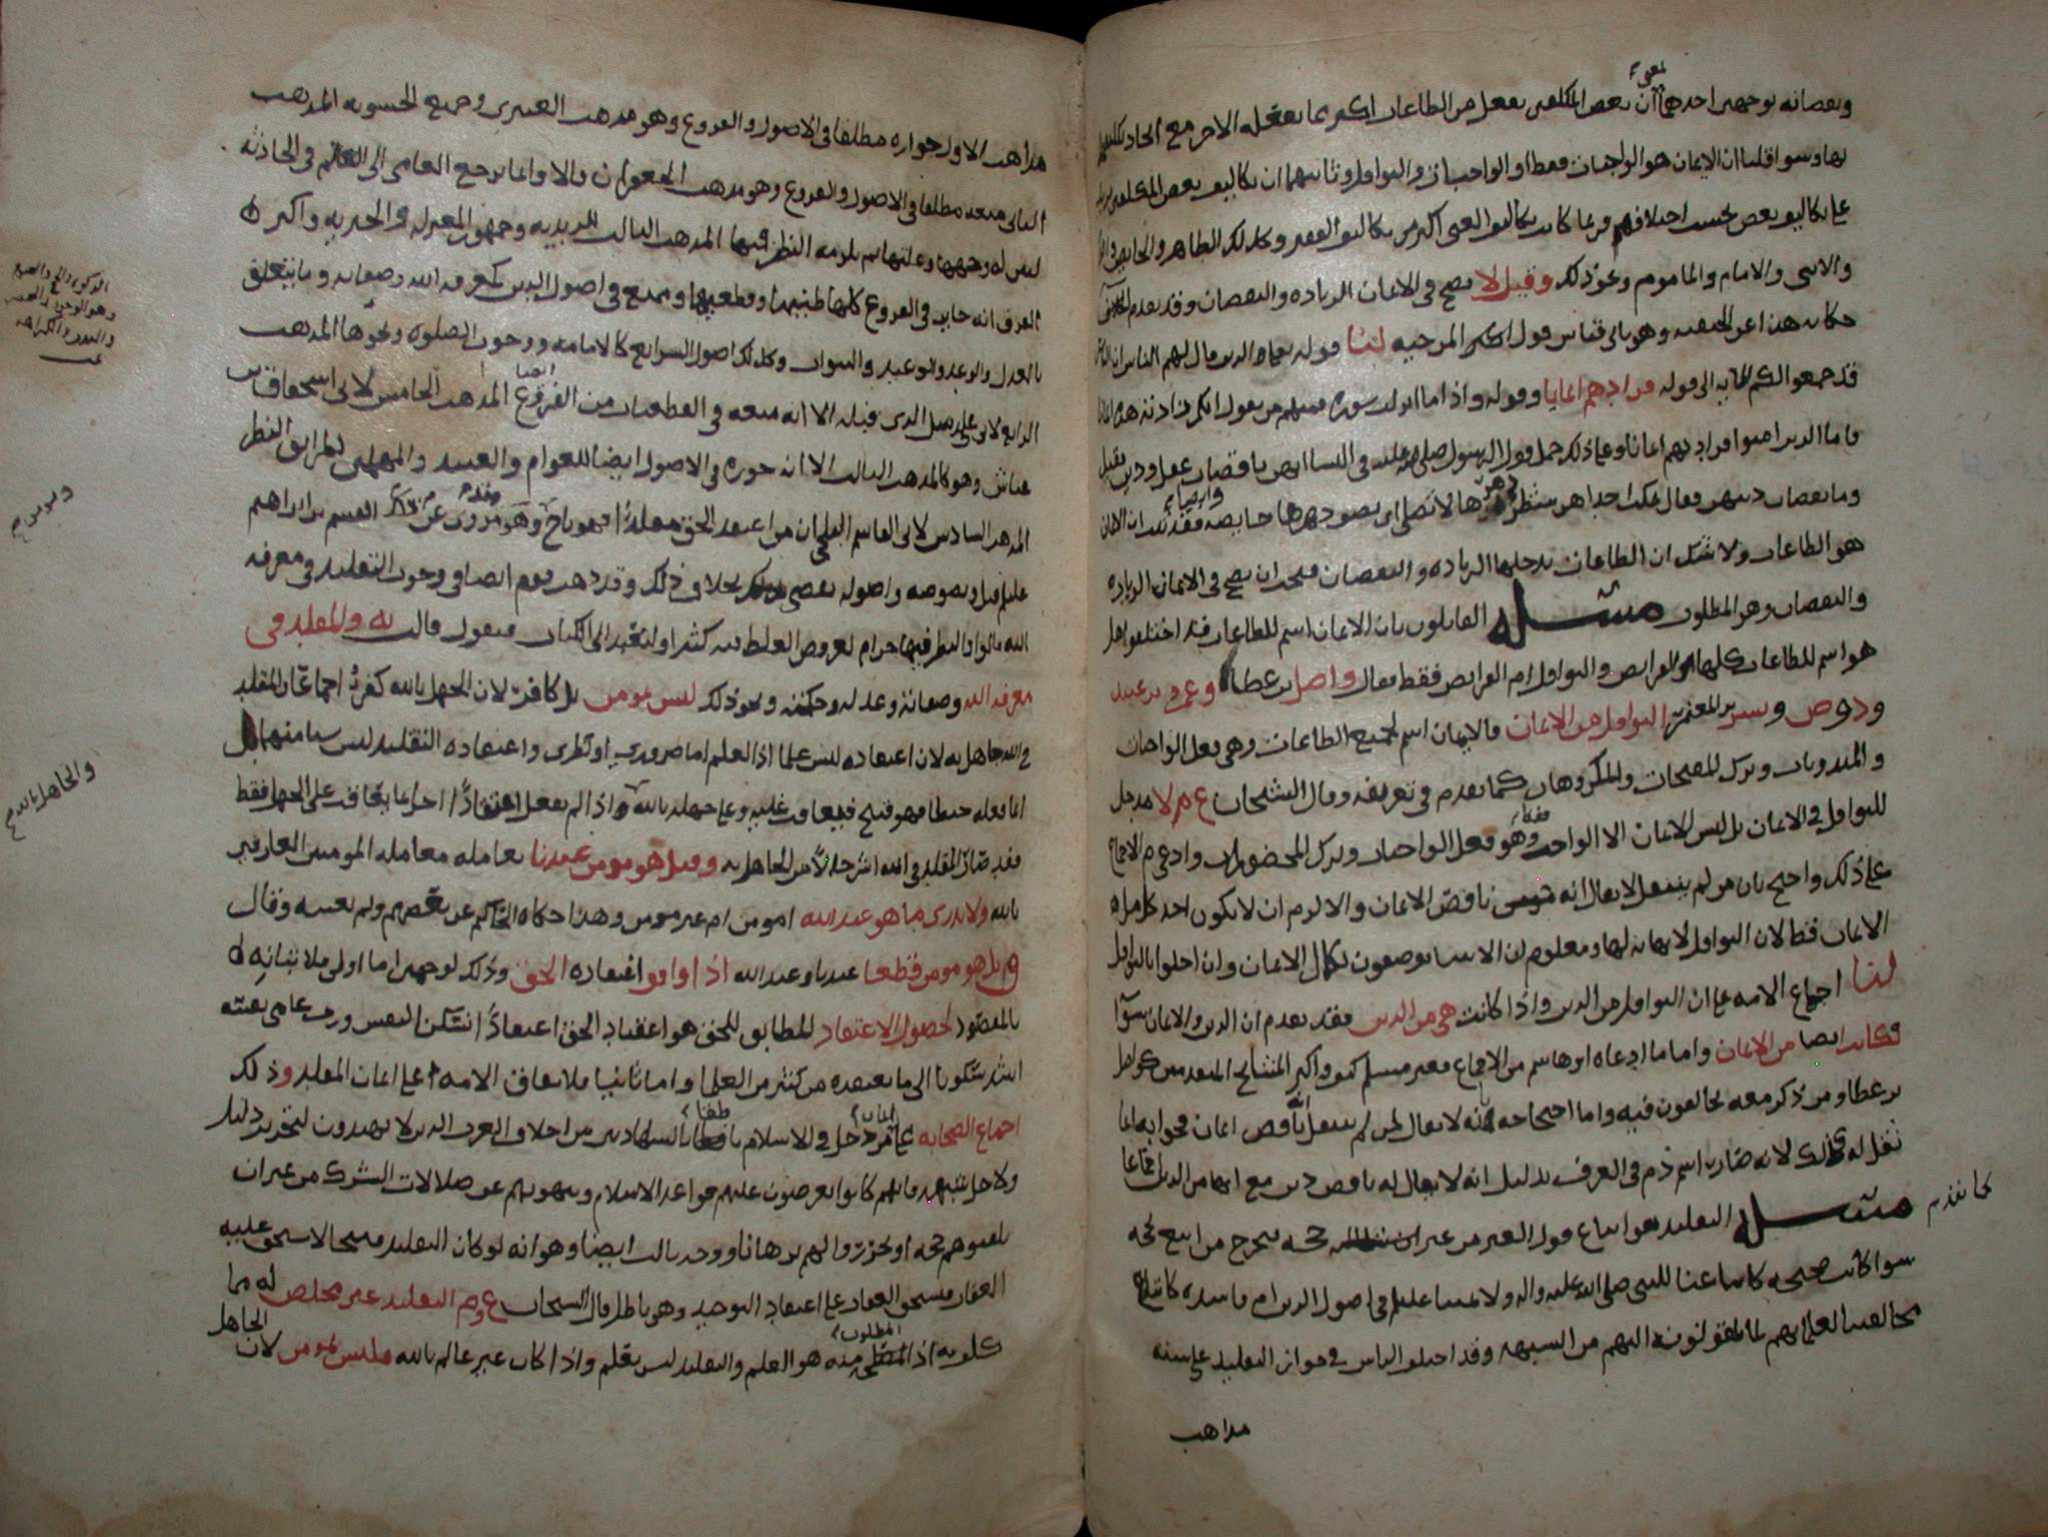 ونقصانه بوجهين احدهما ان بعض المكلفين يفعل من الطاعات اكثر مما يفعله الاخر مع اتحاد تكليفهما
بها وسوا قلنا ان الايمان هو الواجبات فقط او الواجبات والنوافل وثانيهما ان تكاليف بعض المكلفين يزيد
على تكاليف بعض بحسب اختلافهم فربما كانت تكاليف الغني اكثر من تكاليف الفقير وكذلك الطاهر والحايض
والانثى والامام والماموم ونحو ذلك وقيل لا يصح في الايمان الزيادة والنقصان وقد تقدم
حكاية هذا عن الحنفية وهو ياتي قياس قول اكثر المرجية لنا قوله تعالى الذين قال لهم الناس ان الناس
قد جمعوا لكم الاية الى قوله فزادهم ايمانا وقوله واذا ما انزلت سورة فمنهم من يقول ايكم زادته هذه ايمانا
فاما الذين امنوا فزادتهم ايمانا وعلى ذلك حمل قول الرسول صلى الله عليه في النسا انهن ناقصات عقل ودين فقيل
وما نقصان دينهن فقال تمكث احداهن شطر دهرها لا تصلي اي بصومها حايضة فقد ثبت ان الايمان
هو الطاعات ولا شك ان الطاعات يدخلها الزيادة والنقصان فيجب ان يصح في الايمان الزيادة
والنقصان وهو المطلوب مسئلة القايلون بان الايمان اسم للطاعات قد اختلفوا هل
هو اسم للطاعات كلها الفرايض والنوافل ام الفرايض فقط فقال واصل بن عطا وعمرو بن عبيد
وبشر بن المعتمر النوافل من الايمان فالايمان اسم لجميع الطاعات وهي فعل الواجبات
والمندوبات وترك المقبحات والمكروهات كما تقدم في تعريفه وقال الشيخان ع م لا مدخل
للنوافل في الايمان بل ليس الايمان الا الواجب فقط وهو فعل الواجبات وترك المحضورات وادعى م الاجماع
على ذلك واحتج بان من لم يتنفل لا يقال انه ناقص الايمان والا لزم ان لا يكون احد كامل
الايمان قط لان النوافل لا نهاية لها ومعلوم ان الانبيا يوصفون بكمال الايمان وان اخلوا بالنوافل
لنا اجماع الامة على ان النوافل من الدين واذا كانت هي من الدين فقد تقدم ان الدين والايمان سوا
فكانت ايضا من الايمان واما ما ادعاه ابو هاشم من الاجماع فغير مسلم كيف واكثر المشايخ المتقدمين كواصل
بن عطا ومن ذكر معه يخالفون فيه واما احتجاجه بانه لا يقال لمن لم يتنفل انه ناقص ايمان فجوابه انما
يقل له ذلك لانه صار اسم ذم في العرف بدليل انه لا يقال له ناقص دين مع انها من الدين اجماعا
كما تقدم
مسئلة التقليد هو اتباع قول الغير من غير حجة فيخرج من اتبع لحجة
سوا كانت صحيحة كاتباعنا للنبي صلى الله عليه واله ولاتباع علي في اصول الدين ام فاسدة كاتباع
مخالفينا لعلمائهم لما يلقونه اليهم من الشبهة وقد اختلف الناس في جواز التقليد على ستة
مذاهب
مذاهب الاول جوازه مطلقا في الاصول والفروع وهو مذهب العنبري وجميع الحشوية المذهب
الثاني منعه مطلقا في الاصول والفروع وهو مذهب الجعفران قالا وانما يرجع العامي الى العالم في الحادثة
ليبين له وجهها وعلتها ثم يلزمه النظر فيها المذهب الثالث للزيدية وجمهور المعتزلة والجبرية واكثر
الفرق انه جايز في الفروع كلها ظنيها وقطعيها وممتنع في اصول الدين كمعرفة الله وصفاته وما يتعلق
بالعدل والوعد والوعيد والنبوات وكذلك اصول الشرايع كالامامة ووجوب الصلوة ونحوها المذهب
الرابع لابي علي مثل الذي قبله الا انه منعه في القطعيات من الفروع ايضا المذهب الخامس لابي اسحاق بن
عياش وهو كالمذهب الثالث الا انه جوزه في الاصول ايضا للعوام والعبيد والمهملين لطرايق النظر
المذهب السادس لابي القاسم البلخي ان من اعتقد الحق مقلدا فهو ناج وهو مروي عن القسم بن ابراهيم
عليلم قيل ونصوصه واصوله تقضي بخلاف ذلك وقد ذهب قوم ايضا في وجوب التقليد في معرفة
الله قالوا والنظر فيها حرام لعروض الغلط فيه كثيرا ولنعد الى الكتاب فنقول قالت يه والمقلد في
معرفة الله وصفاته وعدله وحكمته ونحو ذلك ليس بمومن بل كافر لان الجهل بالله كفر اجماعا والمقلد
في الله جاهل به لان اعتقاده ليس علما اذ العلم اما ضروري او نظري واعتقاده التقليد ليس شيا منهما بل
انما فعله خبطا فهو قبيح فيعاقب عليه وعلى جهله بالله واذا لم يفعل اعتقادا اخر انما يعاقب على الجهل فقط
فقد صار المقلد في الله اشر حالا من الجاهل به وقيل هو مومن عندنا يعامله معاملة المومنين العارفين
بالله ولا ندري ما هو عند الله امومن ام غير مومن وهذا حكاه الحاكم عن بعضهم ولم يعينه وقال
ق بل هو مومن قطعا عندنا وعند الله اذا وافق اعتقاده الحق وذلك لوجهين اما اولا فلاتيانه
بالمقصود لحصول الاعتقاد المطابق للحق هو اعتقاد الحق اعتقادا تسكن النفس ورب عامي نفسه
اشد سكونا الى ما يعتقده من كثير من العلما واما ثانيا فلاتفاق الامة على ايمان المقلد وذلك
اجماع الصحابة على ايمان من دخل في الاسلام ناطقا بالشهادتين من اجلاف العرب الذين لا يهتدون لتحرير دليل
ولا حل شبهة فانهم كانوا يعرضون عليهم قواعد الاسلام وينهونهم عن ضلالات الشرك من غير ان
يلقنوهم حجة او يحرروا لهم برهانا ووجه ثالث ايضا وهو انه لو كان التقليد قبيحا لاستحق عليه
العقاب فيستحق العقاب على اعتقاد التوحيد وهو باطل قال الشيخان ع وم التقليد غير مخلص له مما
كلف به اذ المطلوب منه هو العلم والتقليد ليس بعلم واذا كان غير عالم بالله فليس بمومن لان الجاهل
والجاهل بالله